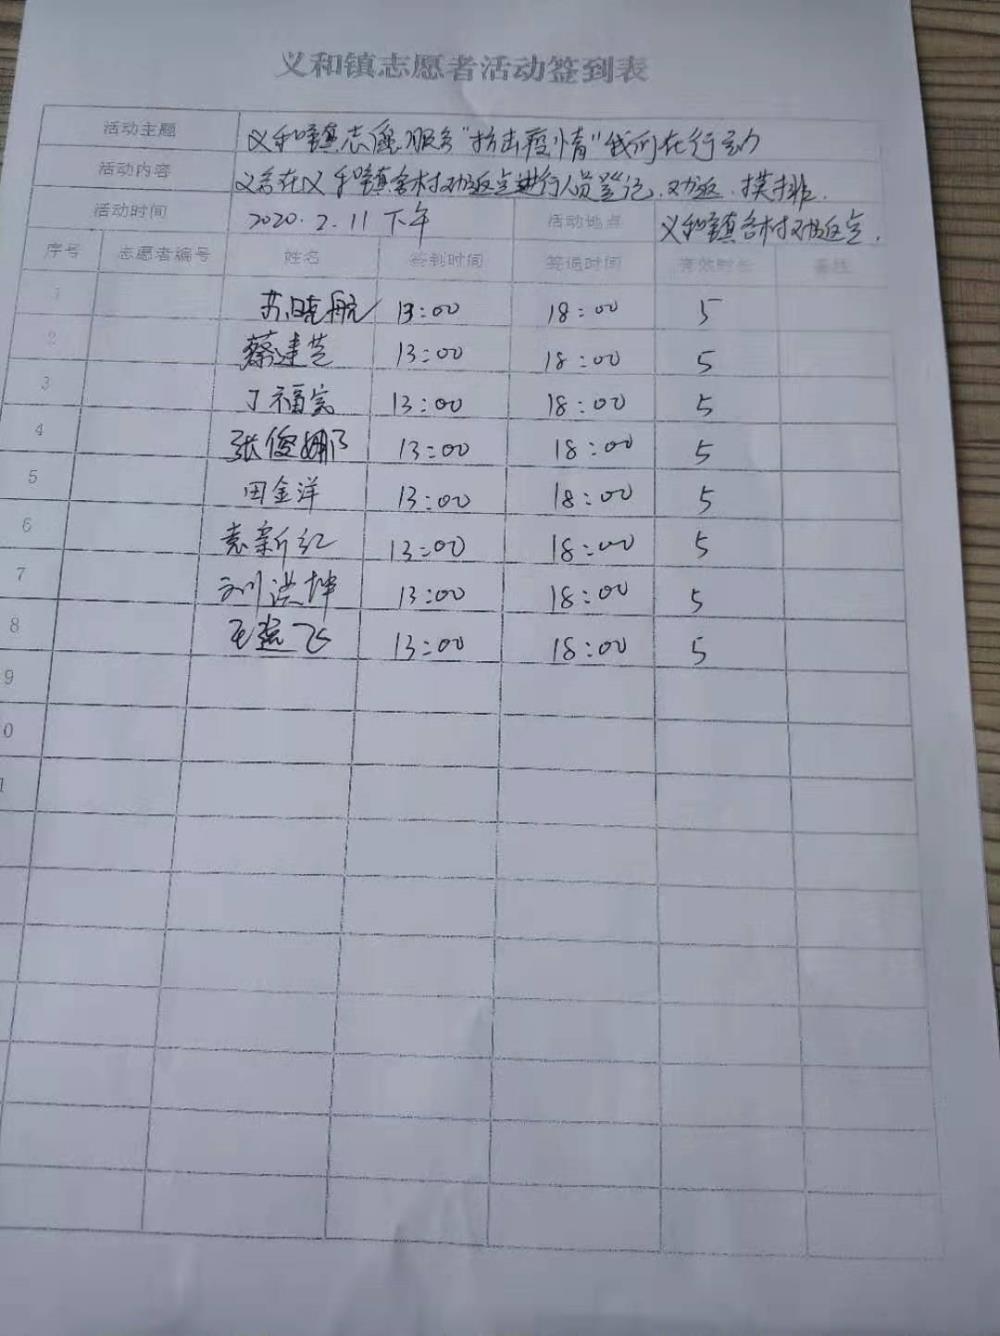 义和镇志愿者活动签到表
活动主题 义和镇志愿服务"抗击疫情"我们在行动
活动内容 义务在义和镇各村劝返点进行人员登记、劝返、摸排.
活动时间 2020.2.11下午 活动地点 义和镇各村劝返点.
序号 志愿者编号 姓名 签到时间 签退时间 有效时长 备注
1 苏晓航 13:00 18:00 5
2 蔡建芝 13:00 18:00 5
3 丁福宾 13:00 18:00 5
4 张俊娜 13:00 18:00 5
5 田金洋 13:00 18:00 5
6 袁新红 13:00 18:00 5
7 刘洪坤 13:00 18:00 5
8 13:00 18:00 5
9
0
1